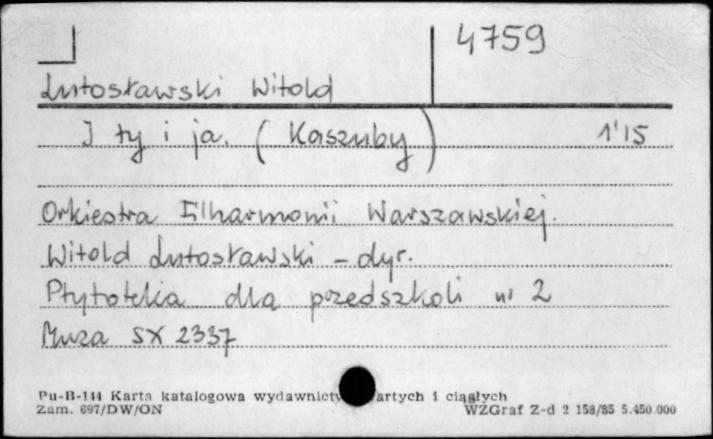 4759
Lutosławski Witold
I ty i ja. (Kaszuby) 1'15
Orkiestra Filharmonii Warszawskiej.
Witold Lutosławski - dyr.
Płytoteka dla przedszkoli nr 2
Muza SX 2337
Pu-B-144 Karta katalogowa wydawnictw zwartych i ciągłych
Zam. 697/DW/ON WZGraf Z-d 2 158/85 5.450.000